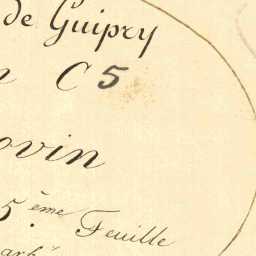 de Guipry
n C 5
ovin
5.ème Feuille